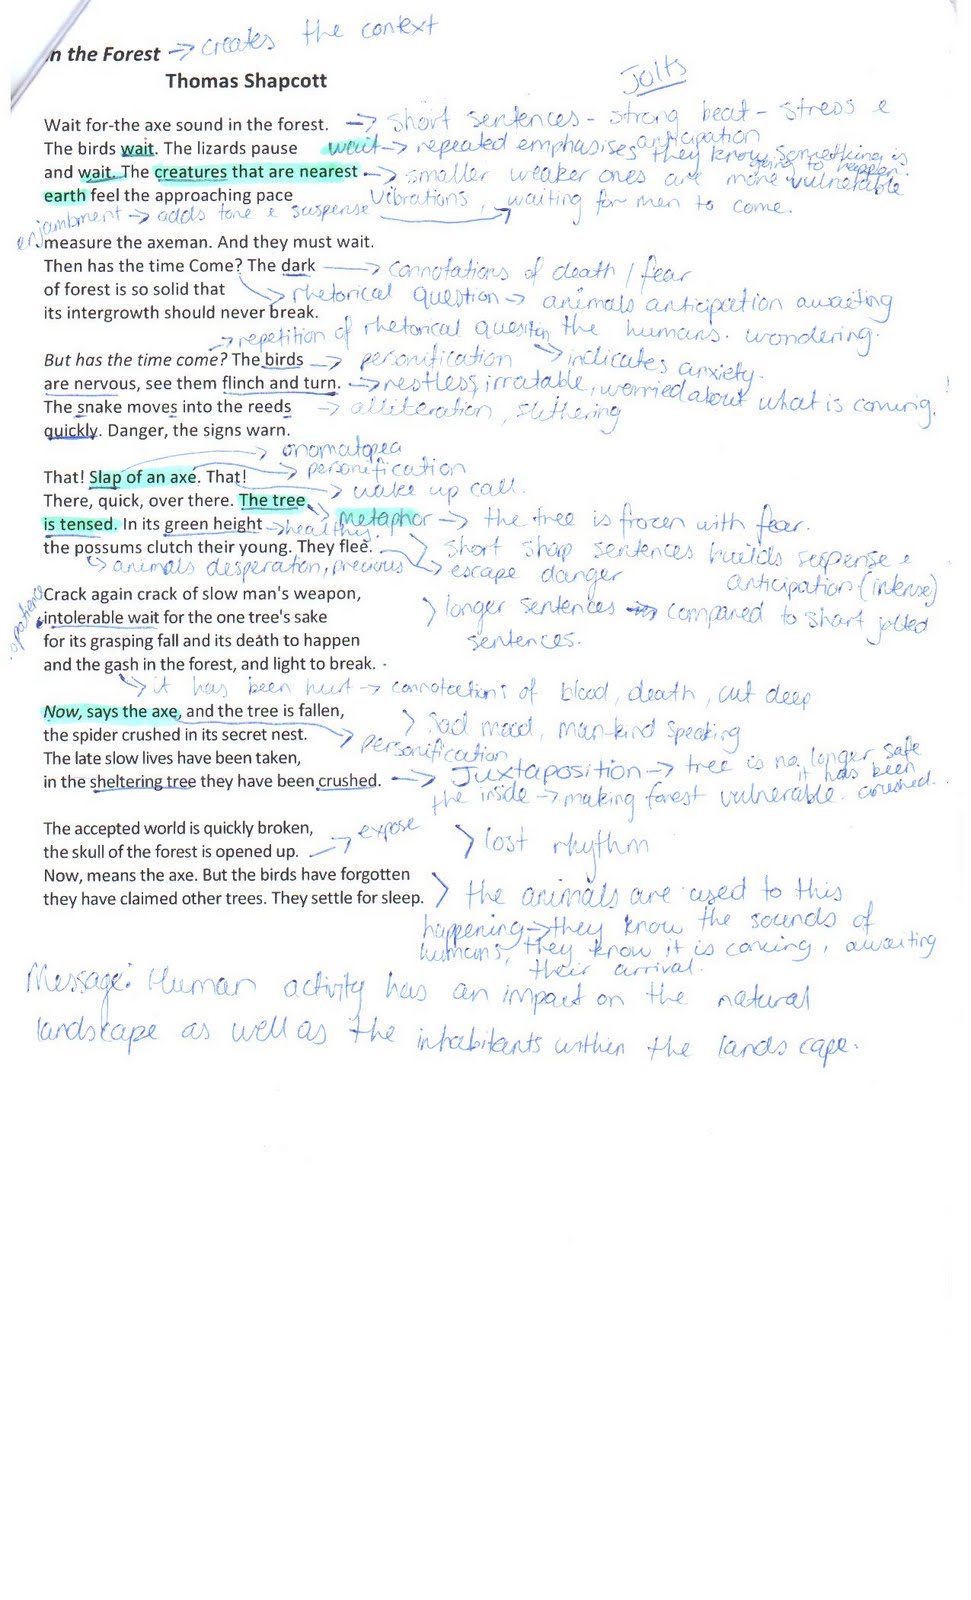 n the Forest → creates the context
Thomas Shapcott
Jolts
Wait for-the axe sound in the forest. → short sentences - strong beat - stress &
anticipation
The birds wait. The lizards pause wait → repeated emphasises they know something is
going to happen.
and wait. The creatures that are nearest → smaller weaker ones are more vulnerable
earth feel the approaching pace vibrations, waiting for men to come.
enjambment → adds tone & suspense
measure the axeman. And they must wait.
Then has the time Come? The dark → connotations of death / fear
of forest is so solid that → rhetorical question → animals anticipation awaiting
its intergrowth should never break. the humans. wondering.
→ repetition of rhetorical question → indicates anxiety.
But has the time come? The birds → personification
are nervous, see them flinch and turn. → restless, irratable, worried about what is coming.
The snake moves into the reeds → alliteration, slithering
quickly. Danger, the signs warn.
→ onomatopea
That! Slap of an axe. That! → personification
There, quick, over there. The tree → wake up call.
is tensed. In its green height → healthy. metaphor → the tree is frozen with fear.
the possums clutch their young. They flee. short sharp sentences builds suspense &
anticipation (intense)
→ animals desperation, precious → escape danger
Crack again crack of slow man's weapon,
intolerable wait for the one tree's sake > longer sentences → compared to short jolted
sentences.
for its grasping fall and its death to happen
and the gash in the forest, and light to break.
→ it has been hurt → connotations of blood, death, cut deep
Now, says the axe, and the tree is fallen, > Sad mood, mankind speaking
the spider crushed in its secret nest. → personification
The late slow lives have been taken,
in the sheltering tree they have been crushed. → Juxtaposition → tree is no longer safe
it has been crushed.
the inside → making forest vulnerable.
The accepted world is quickly broken, → expose
the skull of the forest is opened up. > lost rhythm
Now, means the axe. But the birds have forgotten
they have claimed other trees. They settle for sleep. > the animals are used to this
happening → they know the sounds of
humans, they know it is coming, awaiting
their arrival.
Message: Human activity has an impact on the natural
landscape as well as the inhabitants within the landscape.